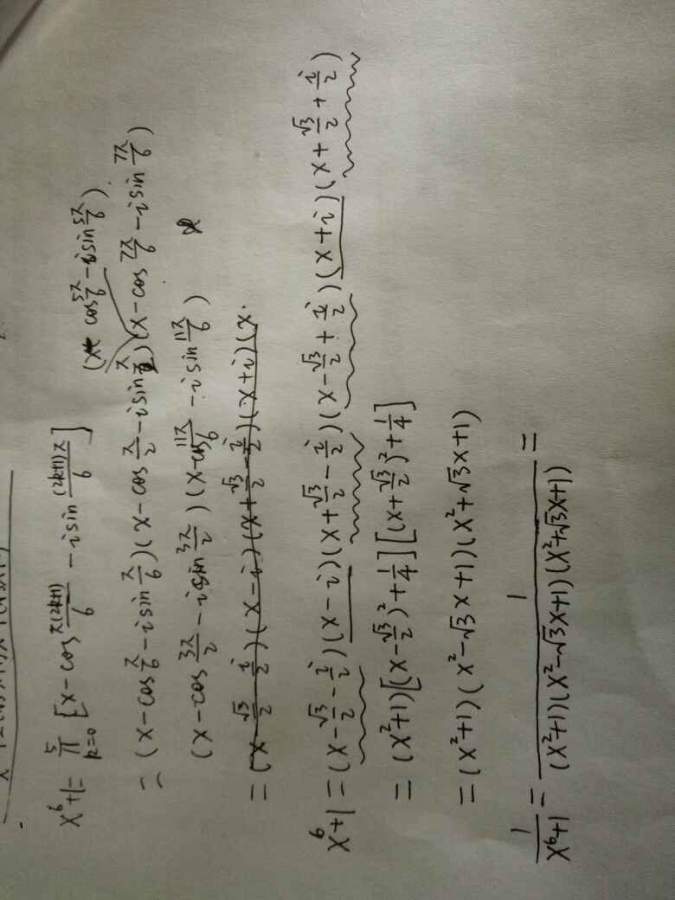 x⁶+1 = ∏_{k=0}^{5} [x - cos π(2k+1)/6 - i sin (2k+1)π/6]
(x - cos 5π/6 - i sin 5π/6)
= (x - cos π/6 - i sin π/6)(x - cos π/2 - i sin π/2)(x - cos 7π/6 - i sin 7π/6)
(x - cos 3π/2 - i sin 3π/2)(x - cos 11π/6 - i sin 11π/6)
= (x - √3/2 - i/2)(x - i)(x + √3/2 - i/2)(x + i)(x
x⁶+1 = (x - √3/2 - i/2)(x - i)(x + √3/2 - i/2)(x - √3/2 + i/2)(x + i)(x + √3/2 + i/2)
= (x²+1)[(x - √3/2)² + 1/4][(x + √3/2)² + 1/4]
= (x²+1)(x² - √3x + 1)(x² + √3x + 1)
1/(x⁶+1) = 1/((x²+1)(x² - √3x + 1)(x² + √3x + 1)) =